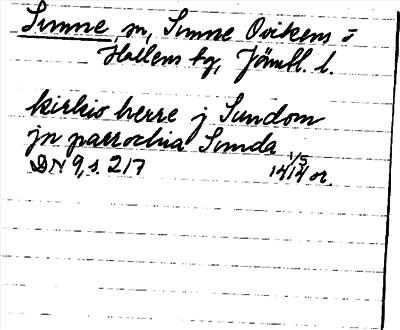 Sunne sn, Sunne Ovikens o
Hallens tg, Jämtl. l.
kirkio herre j Sundom
jn parrochia Sunda
DN 9, s. 217 1/5 1414 or.